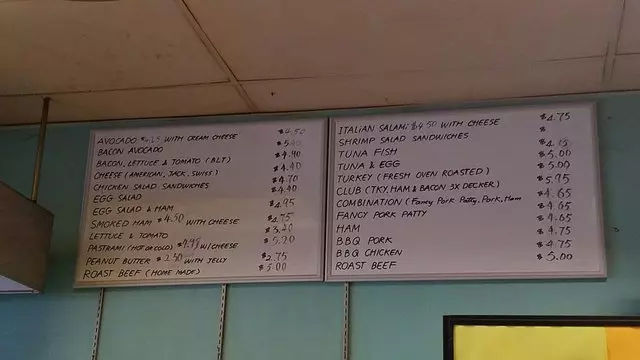 AVOCADO $4.25 WITH CREAM CHEESE $4.50
BACON AVOCADO $5.00
BACON, LETTUCE & TOMATO (BLT) $4.40
CHEESE (AMERICAN, JACK, SWISS) $4.40
CHICKEN SALAD SANDWICHES $4.70
EGG SALAD $4.40
EGG SALAD & HAM $4.95
SMOKED HAM $4.50 WITH CHEESE $4.75
LETTUCE & TOMATO $3.20
PASTRAMI (HOT OR COLD) $4.95 W/CHEESE $5.20
PEANUT BUTTER $2.50 WITH JELLY $2.75
ROAST BEEF (HOME MADE) $5.00
ITALIAN SALAMI $4.50 WITH CHEESE $4.75
SHRIMP SALAD SANDWICHES $
TUNA FISH
TUNA & EGG $5.00
TURKEY (FRESH OVEN ROASTED) $5.00
CLUB (TKY, HAM & BACON 3X DECKER) $5.95
COMBINATION (Fancy Pork Patty, Pork, Ham $4.65
FANCY PORK PATTY $4.65
HAM $4.65
BBQ PORK $4.75
BBQ CHICKEN $4.75
ROAST BEEF $5.00